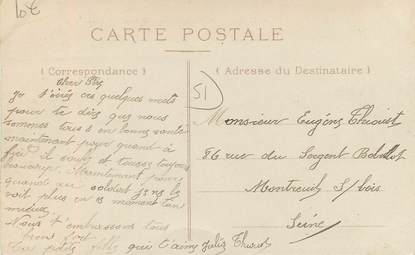 10€
CARTE POSTALE
(Correspondance)
(Adresse du Destinataire)
Cher
Je t'écris ces quelques mots
pour te dire que nous
sommes tous en bonne santé
maintenant pour quand à
et tousse toujours
Maintenant pour
quand au soldat je ne le
voit plus en ce moment tant
mieux
Nous t'embrassons tous
bien fort
Ta petite fille qui t'aime Julia
51
Monsieur Eugène Thioust
86 rue du Sergent Bobillot
Montreuil S/bois
Seine